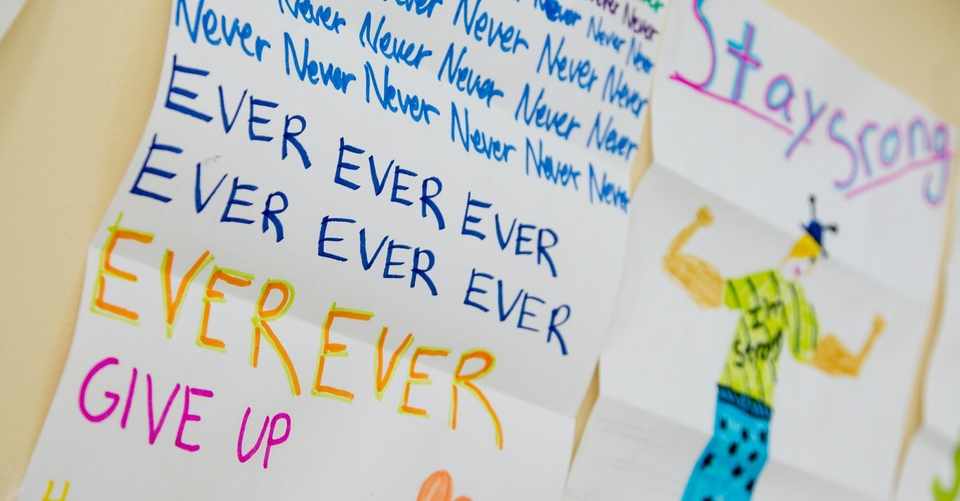 Never Never Never
Never Never Never Never
Never Never Never Never Never
Never Never Never Never Never Never
EVER EVER EVER
EVER EVER EVER
EVER EVER
GIVE UP
Stay srong
I'm